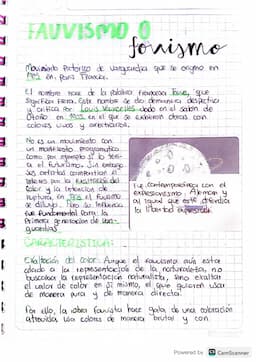 FAUVISMO O
fovismo
Movimiento Pictórico de Vanguardia que se originó en
1905 en, París Francia.
El nombre nace de la palabra francesa Fauve, que
significa fiera. Este nombre se dio de manera despectiva
y crítica por Louis Vauxcelles dado en el salón de
Otoño en 1905 en el que se exhibieron obras con
colores vivos y
No es un movimiento con
un manifiesto programático
como por ejemplo si lo tenía
el futurismo. Sin embargo
estos artistas compartían el
interés por la exaltación del
color y la intención de
ruptura, en 1908 el fauvismo
se diluyó. Pero su influencia
fue fundamental para la
primera generación de van-
guardias.
Fue contemporánea con el
expresionismo Alemán y
al igual que este defendía
la libertad expresiva.
CARACTERISTICA:
Exaltación del Color: Aunque el fauvismo aún esta
dado a la representación de la naturaleza, no
buscaba la representación naturalista, sino exaltar
el color de en si mismo, el que quieren usar
de manera pura y de manera directa.
Por ello, la obra fauvista hace gala de una coloración
atrevida, usa colores de manera brutal y con
Powered by CS CamScanner